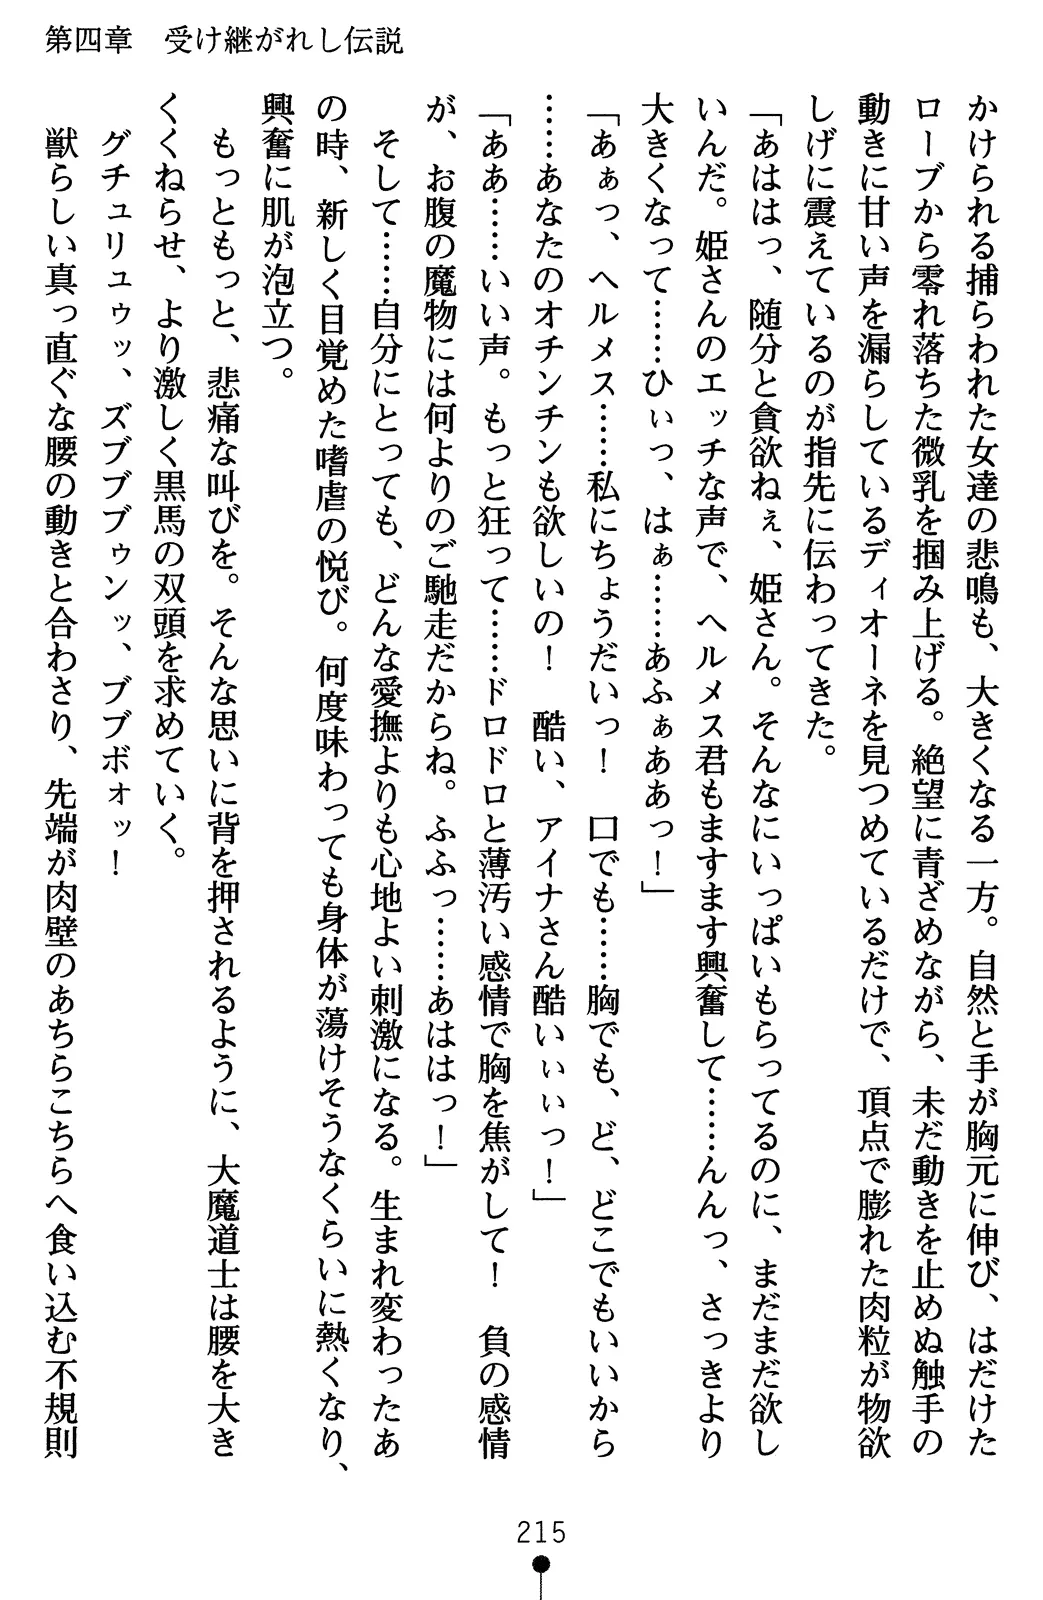 第四章　受け継がれし伝説
かけられる捕らわれた女達の悲鳴も、大きくなる一方。自然と手が胸元に伸び、はだけた
ローブから零れ落ちた微乳を掴み上げる。絶望に青ざめながら、未だ動きを止めぬ触手の
動きに甘い声を漏らしているディオーネを見つめているだけで、頂点で膨れた肉粒が物欲
しげに震えているのが指先に伝わってきた。
「あははっ、随分と貪欲ねぇ、姫さん。そんなにいっぱいもらってるのに、まだまだ欲し
いんだ。姫さんのエッチな声で、ヘルメス君もますます興奮して……んんっ、さっきより
大きくなって……ひぃっ、はぁ……あふぁああっ！」
「あぁっ、ヘルメス……私にちょうだいっ！　口でも……胸でも、ど、どこでもいいから
……あなたのオチンチンも欲しいの！　酷い、アイナさん酷いぃぃっ！」
「ああ……いい声。もっと狂って……ドロドロと薄汚い感情で胸を焦がして！　負の感情
が、お腹の魔物には何よりのご馳走だからね。ふふっ……あははっ！」
そして……自分にとっても、どんな愛撫よりも心地よい刺激になる。生まれ変わったあ
の時、新しく目覚めた嗜虐の悦び。何度味わっても身体が蕩けそうなくらいに熱くなり、
興奮に肌が泡立つ。
もっともっと、悲痛な叫びを。そんな思いに背を押されるように、大魔道士は腰を大き
くくねらせ、より激しく黒馬の双頭を求めていく。
グチュリュゥッ、ズブブブゥンッ、ブブボォッ！
獣らしい真っ直ぐな腰の動きと合わさり、先端が肉壁のあちらこちらへ食い込む不規則
215